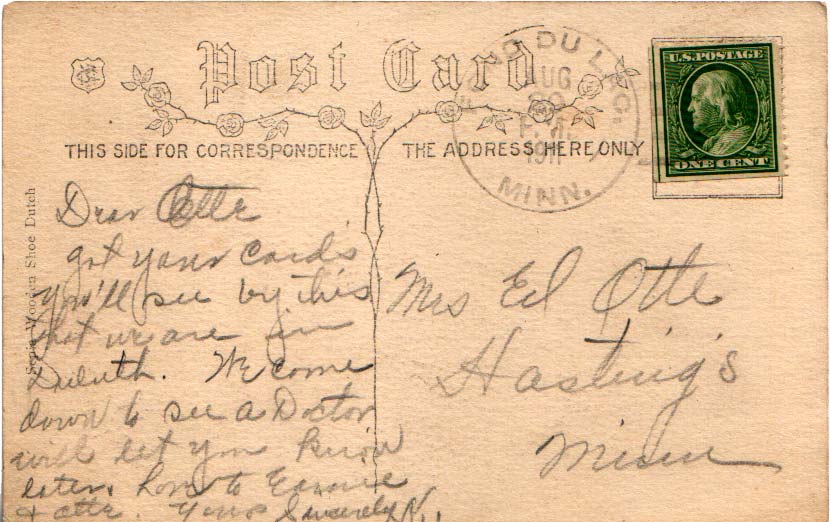 Post Card
THIS SIDE FOR CORRESPONDENCE
THE ADDRESS HERE ONLY
FOND DU LAC.
AUG
P.M.
1911
MINN.
U.S. POSTAGE
ONE CENT
Series Wooden Shoe Dutch
Dear Otte
got your cards
you'll see by this
that we are in
Duluth. We come
down to see a Doctor
will let you know
later. love to
& Otte. Yours Sincerely N.
Mrs Ed Otte
Hasting's
Minn